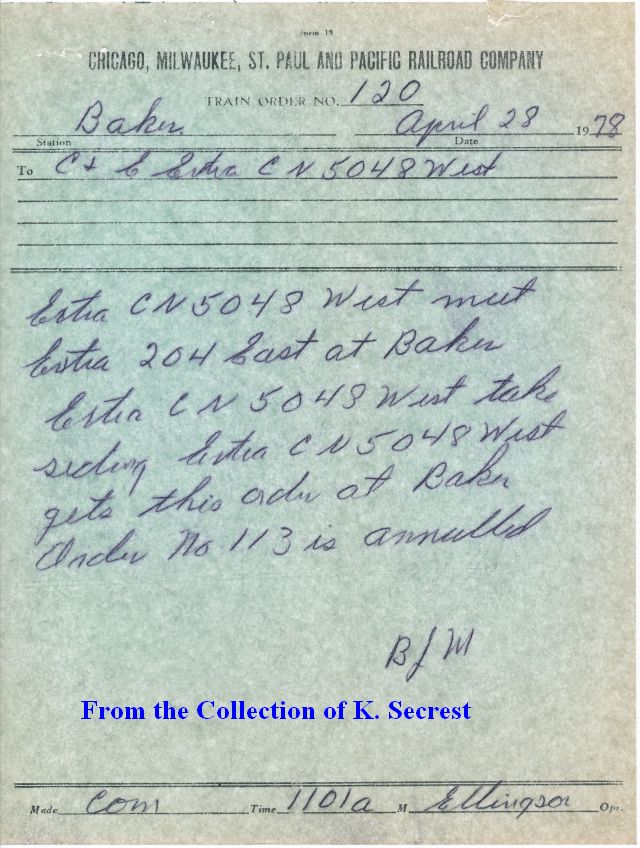 Form 19
CHICAGO, MILWAUKEE, ST. PAUL AND PACIFIC RAILROAD COMPANY
TRAIN ORDER NO. 120
Baker April 28 1978
Station Date
To C & E Extra C N 5048 West
Extra CN 5048 West meet
Extra 204 East at Baker
Extra C N 5048 West take
siding Extra C N 5048 West
gets this order at Baker
Order No. 113 is annulled
B J M
From the Collection of K. Secrest
Made Com Time 1101a M Ellingson Opr.